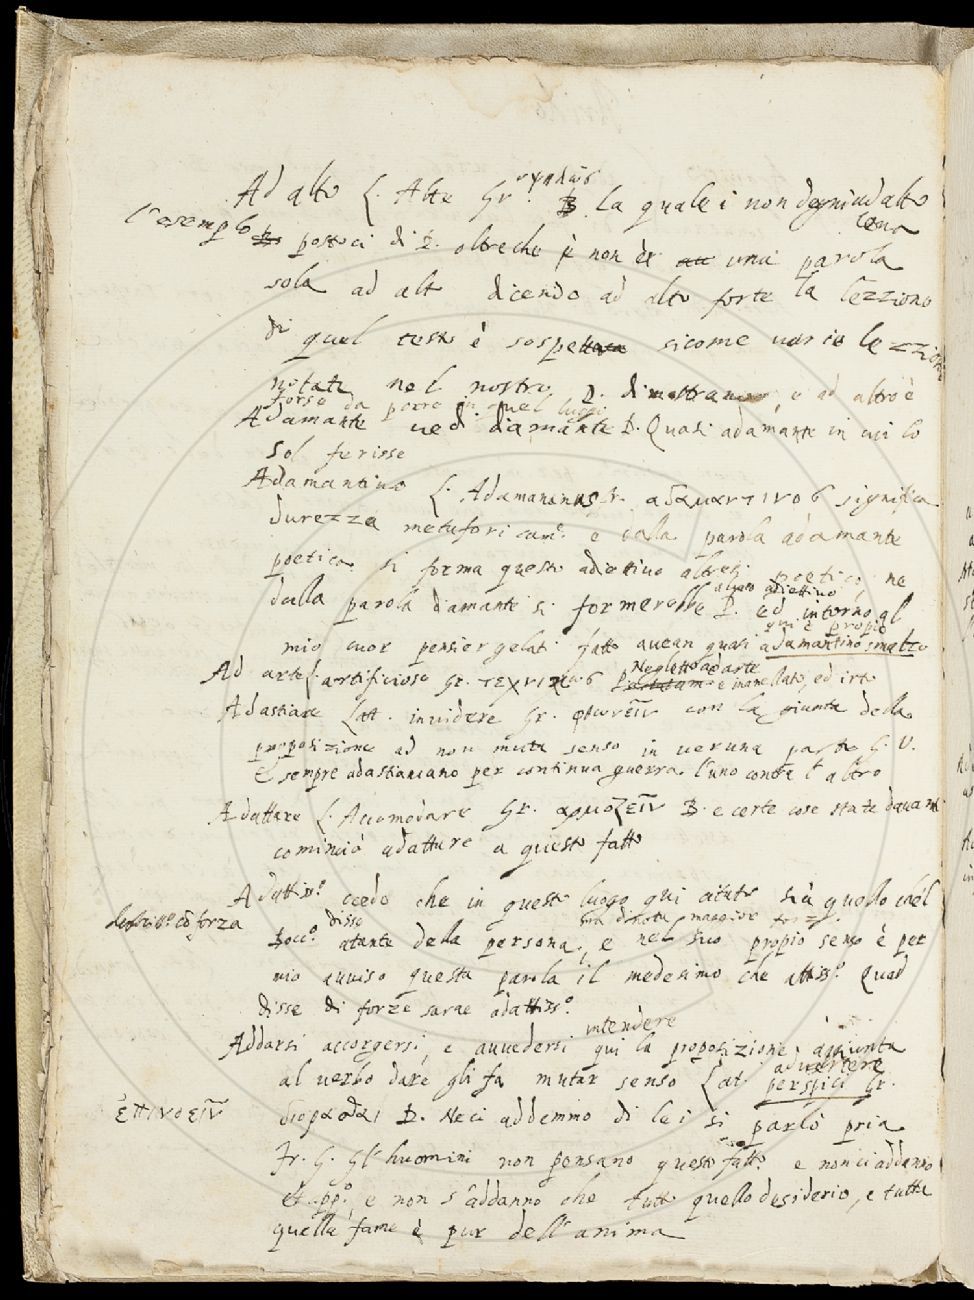 Ad alto L. Alte Gr. ὑψηλῶς B. la quale i non degni ad alto
l'esempio postoci di B. oltreche è non è una parola cena
sola ad alt dicendo ad alto forte la lezzione
di quel testo è sospetta sicome varie lezzioni
notate nel nostro B. dimostrano, e ad altro è
forse da porre in quel luogo
Adamante vedi diamante B. Quasi adamante in cui lo
sol ferisse
Adamantino L. Adamantinus Gr. αδαμαντινος significa
durezza metaforicam.e e dalla parola adamante
poetica si forma questo adiettivo altresi poetico, ne
dalla parola diamante si formerebbe altro adiettivo P. ed intorno al
mio cuor pensier gelati fatto avean quasi adamantino smalto
qui è propio
Ad arte L. artificiose Gr. τεχνικῶς Negletto ad arte e innanellato, ed irto
Adastiare Lat. invidere Gr. φθονεῖν con la giunta della
proposizione ad non muta senso in veruna parte G. V.
E sempre adastiavano per continua guerra l'uno contra l'altro
Adattare L. Accomodare Gr. αρμοζεῖν B. e certe cose state davanti
cominciò adattare a questo fatto
Adattiss.o credo che in questo luogo qui citato sia quello che'l
Bocc.o disse atante della persona, e nel suo propio senso è per
mio avviso questa parola il medesimo che attiss.o Quad
disse di forze sarae adattiss.o
Addarsi accorgersi, e avvedersi intendere qui la proposizione aggiunta
al verbo dare gli fa mutar senso Lat. advertere perspici Gr.
ἐπινοεῖν
B. Ne ci addemmo di lei si parlò pria
Fr. G. Gl' huomini non pensano questo fatto e non ci addanno
et pp.o e non s'addanno che tutto quello desiderio, e tutta
quella fame è pur dell'anima